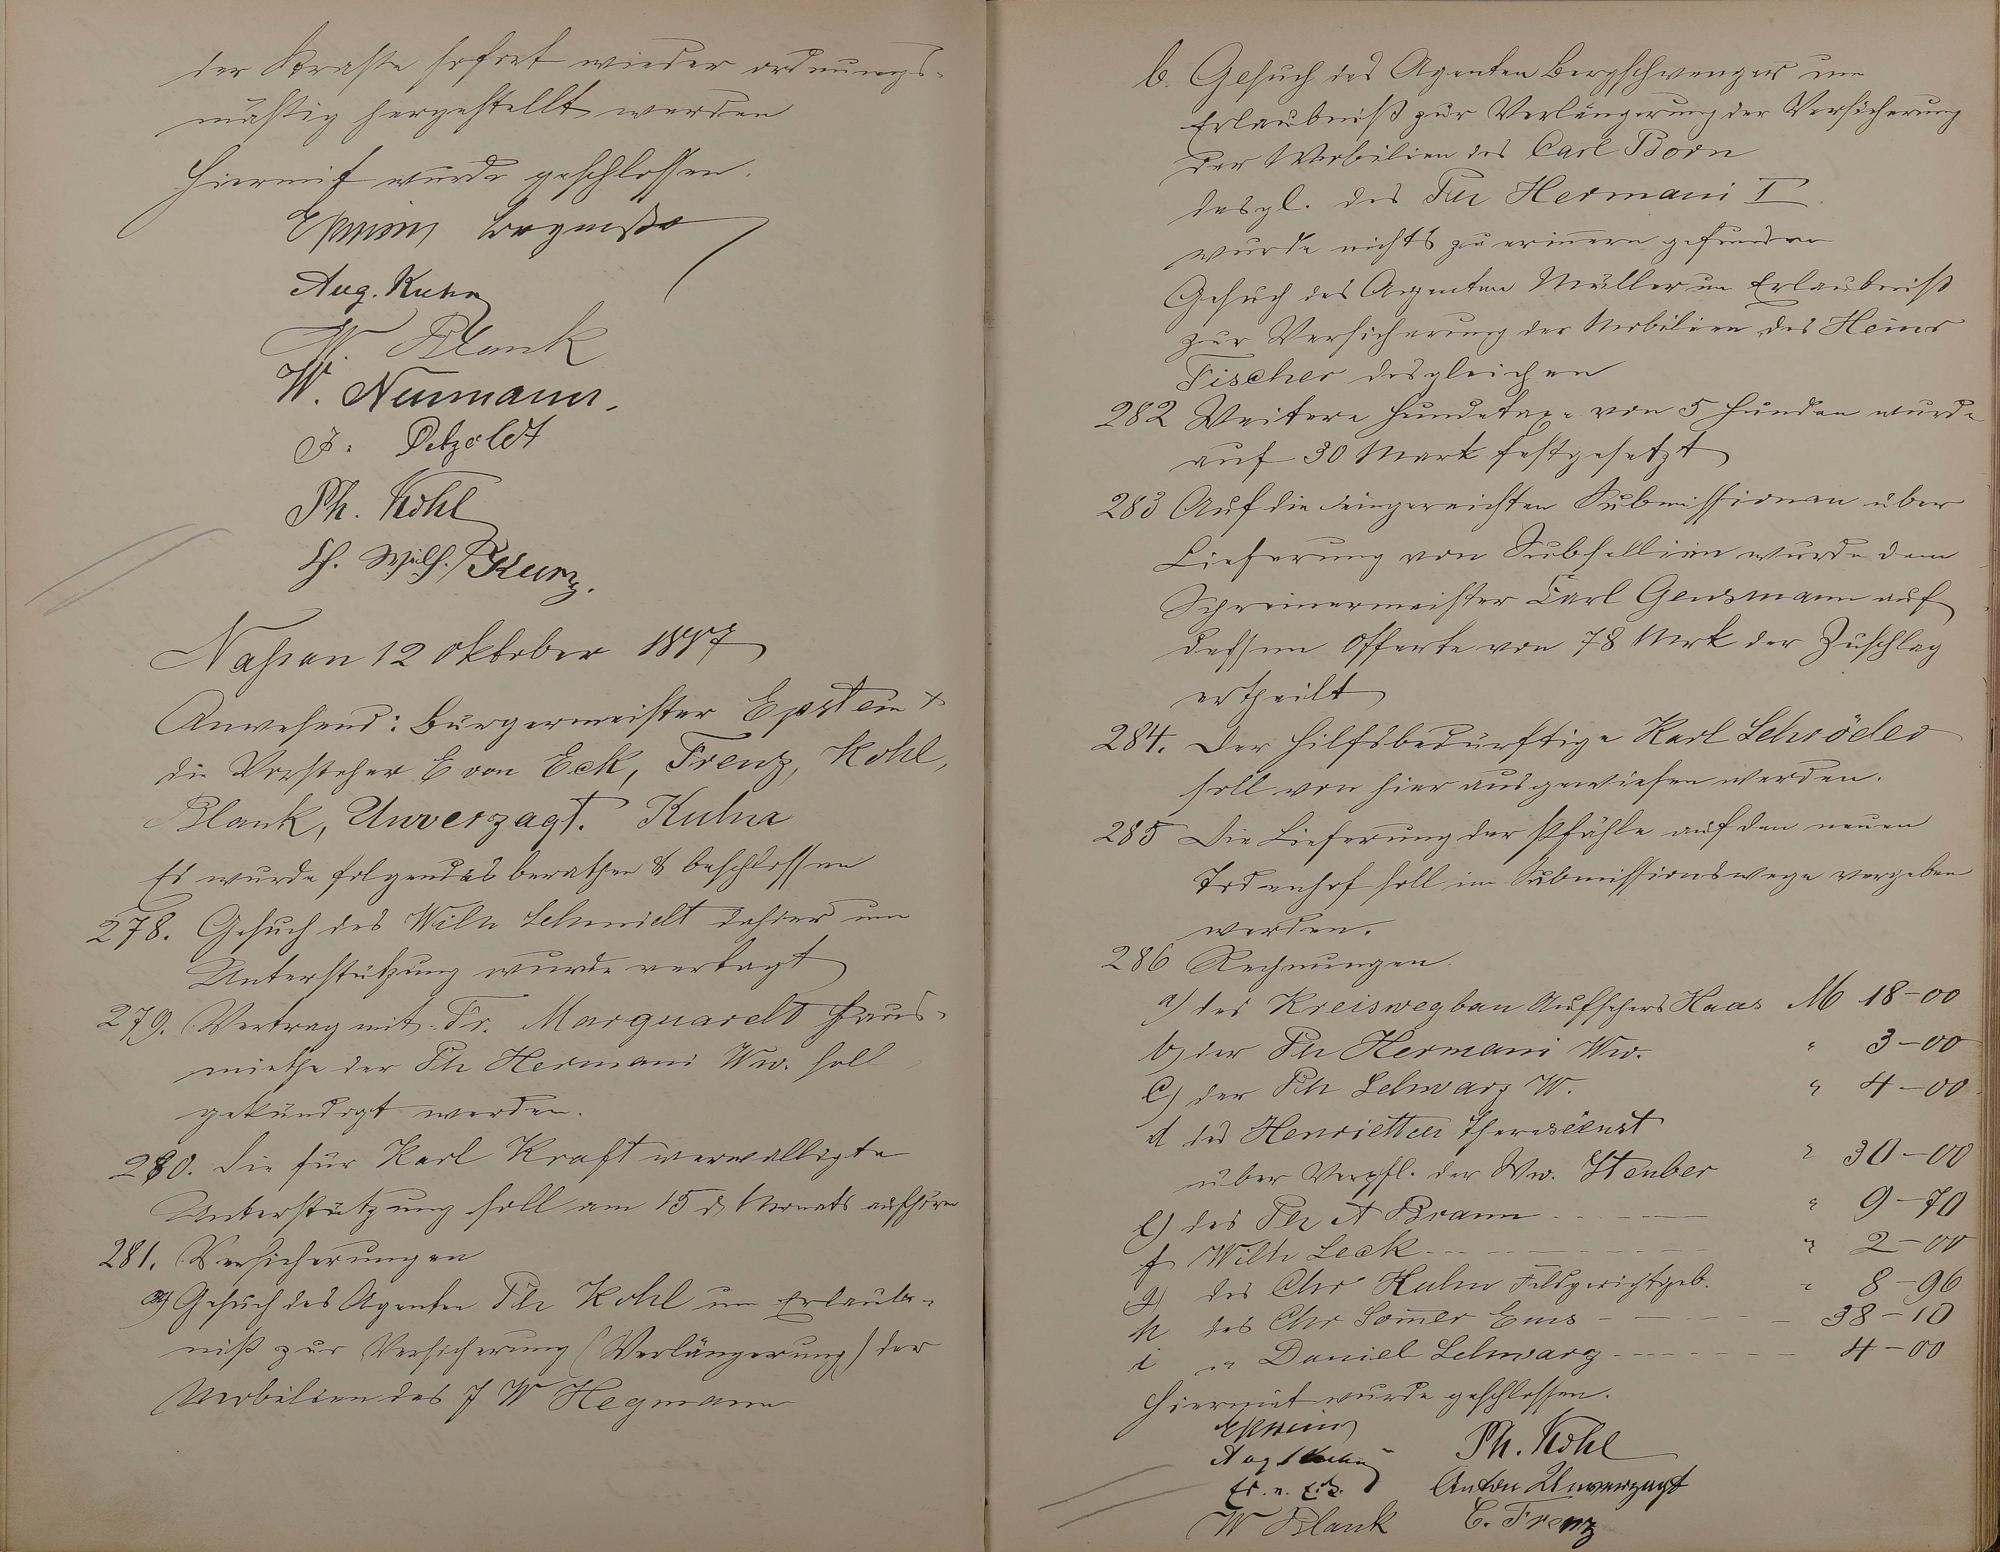 der Straße sofort wieder ordnungs-
mäßig hergestellt werden
Hiermit wurde geschlossen.
Epstein Bürgermstr
Aug. Kuhn
W. Blank
W. Neumann.
J. Petzoldt
Ph. Kohl
H. Wilh. Kurz.
Nassau 12 Oktober 1897
Anwesend: Bürgermeister Epstein +
die Vorsteher E von Eck, Frenz, Kohl,
Blank, Unverzagt. Kuhn
Es wurde folgendes berathen & beschlossen
278. Gesuch des Wilh Schmidt dahier um
Unterstützung wurde vertagt
279. Vertrag mit Fr. Marquardt Haus-
miethe der Ph Hermani Ww. soll
gekündigt werden.
280. Die für Karl Kraft verwilligte
Unterstützung soll am 15 d. Monats aufhören
281. Versicherungen
a) Gesuch des Agenten Ph Kohl um Erlaub-
niß zur Versicherung (Verlängerung) der
Mobilien des J W Hegmann
b. Gesuch des Agenten Bergschwenger um
Erlaubniß zur Verlängerung der Versicherung
der Mobilien des Carl Born
desgl. des Ph Hermani I
wurde nichts zu erinnern gefunden
Gesuch des Agenten Müller um Erlaubniß
zur Versicherung der Mobilien des Heinr
Fischer desgleichen
282 Weitere Hundetaxe von 5 Hunden wurde
auf 30 Mark festgesetzt
283 Auf die eingereichten Submissionen über
Lieferung von Subsellien wurde dem
Schreinermeister Carl Gensmann auf
dessen Offerte von 78 Mrk der Zuschlag
ertheilt
284. Der hilfsbedürftige Karl Schröder
soll von hier ausgewiesen werden.
285 Die Lieferung der Pfähle auf den neuen
Todenhof soll im Submissionswege vergeben
werden.
286 Rechnungen.
a) des Kreiswegbau Aufsehers Haas M 18-00
b) der Ph Hermani Ww. " 3-00
c) der Ph Schwarz W. " 4-00
d des Henrietten
über Verpfl. der Ww. Steuber " 30-00
e) des Ph A Braun " 9-70
f Wilh Leck " 2-00
g) des Chr Kuhn Feldgerichtgeb. " 8-96
h des Chr Sommer Ems 38-10
i " Daniel Schwarz 4-00
Hiermit wurde geschlossen.
Epstein Ph. Kohl
Aug Kuhn Anton Unverzagt
Ed. v. Eck. C. Frenz
W Blank